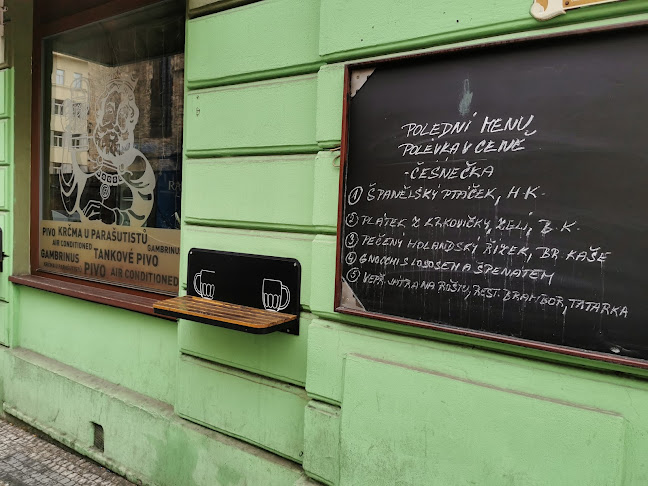 PIVO KRČMA U PARAŠUTISTŮ
AIR CONDITIONED GAMBRINUS
GAMBRINUS TANKOVÉ PIVO
PIVO AIR CONDITIONED
POLEDNÍ MENU
POLÉVKA V CENĚ
- ČESNEČKA
1 ŠPANĚLSKÝ PTÁČEK, H.K.
2 PLÁTEK Z KRKOVIČKY, ZELÍ, B.K.
3 PEČENÝ HOLANDSKÝ ŘÍZEK, BR. KAŠE
4 GNOCCHI S LOSOSEM A ŠPENÁTEM
5 VEPŘ. JÁTRA NA ROŠTU, REST. BRAMBOR, TATARKA